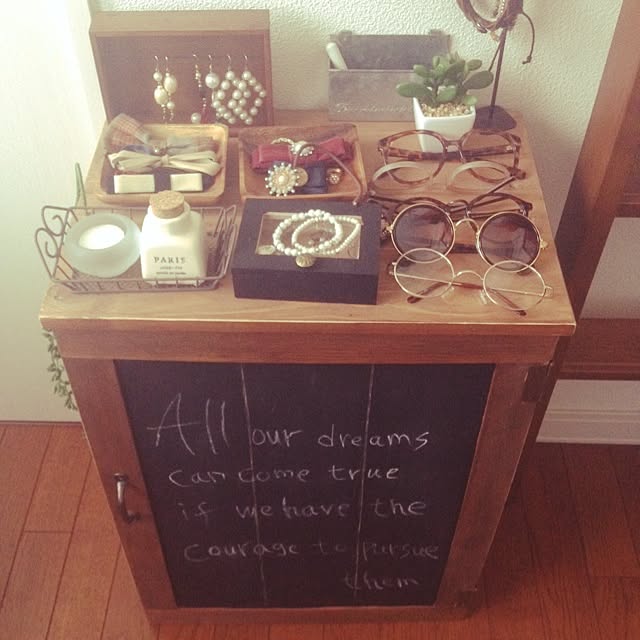 PARIS
All our dreams
can come true
if we have the
courage to pursue
them